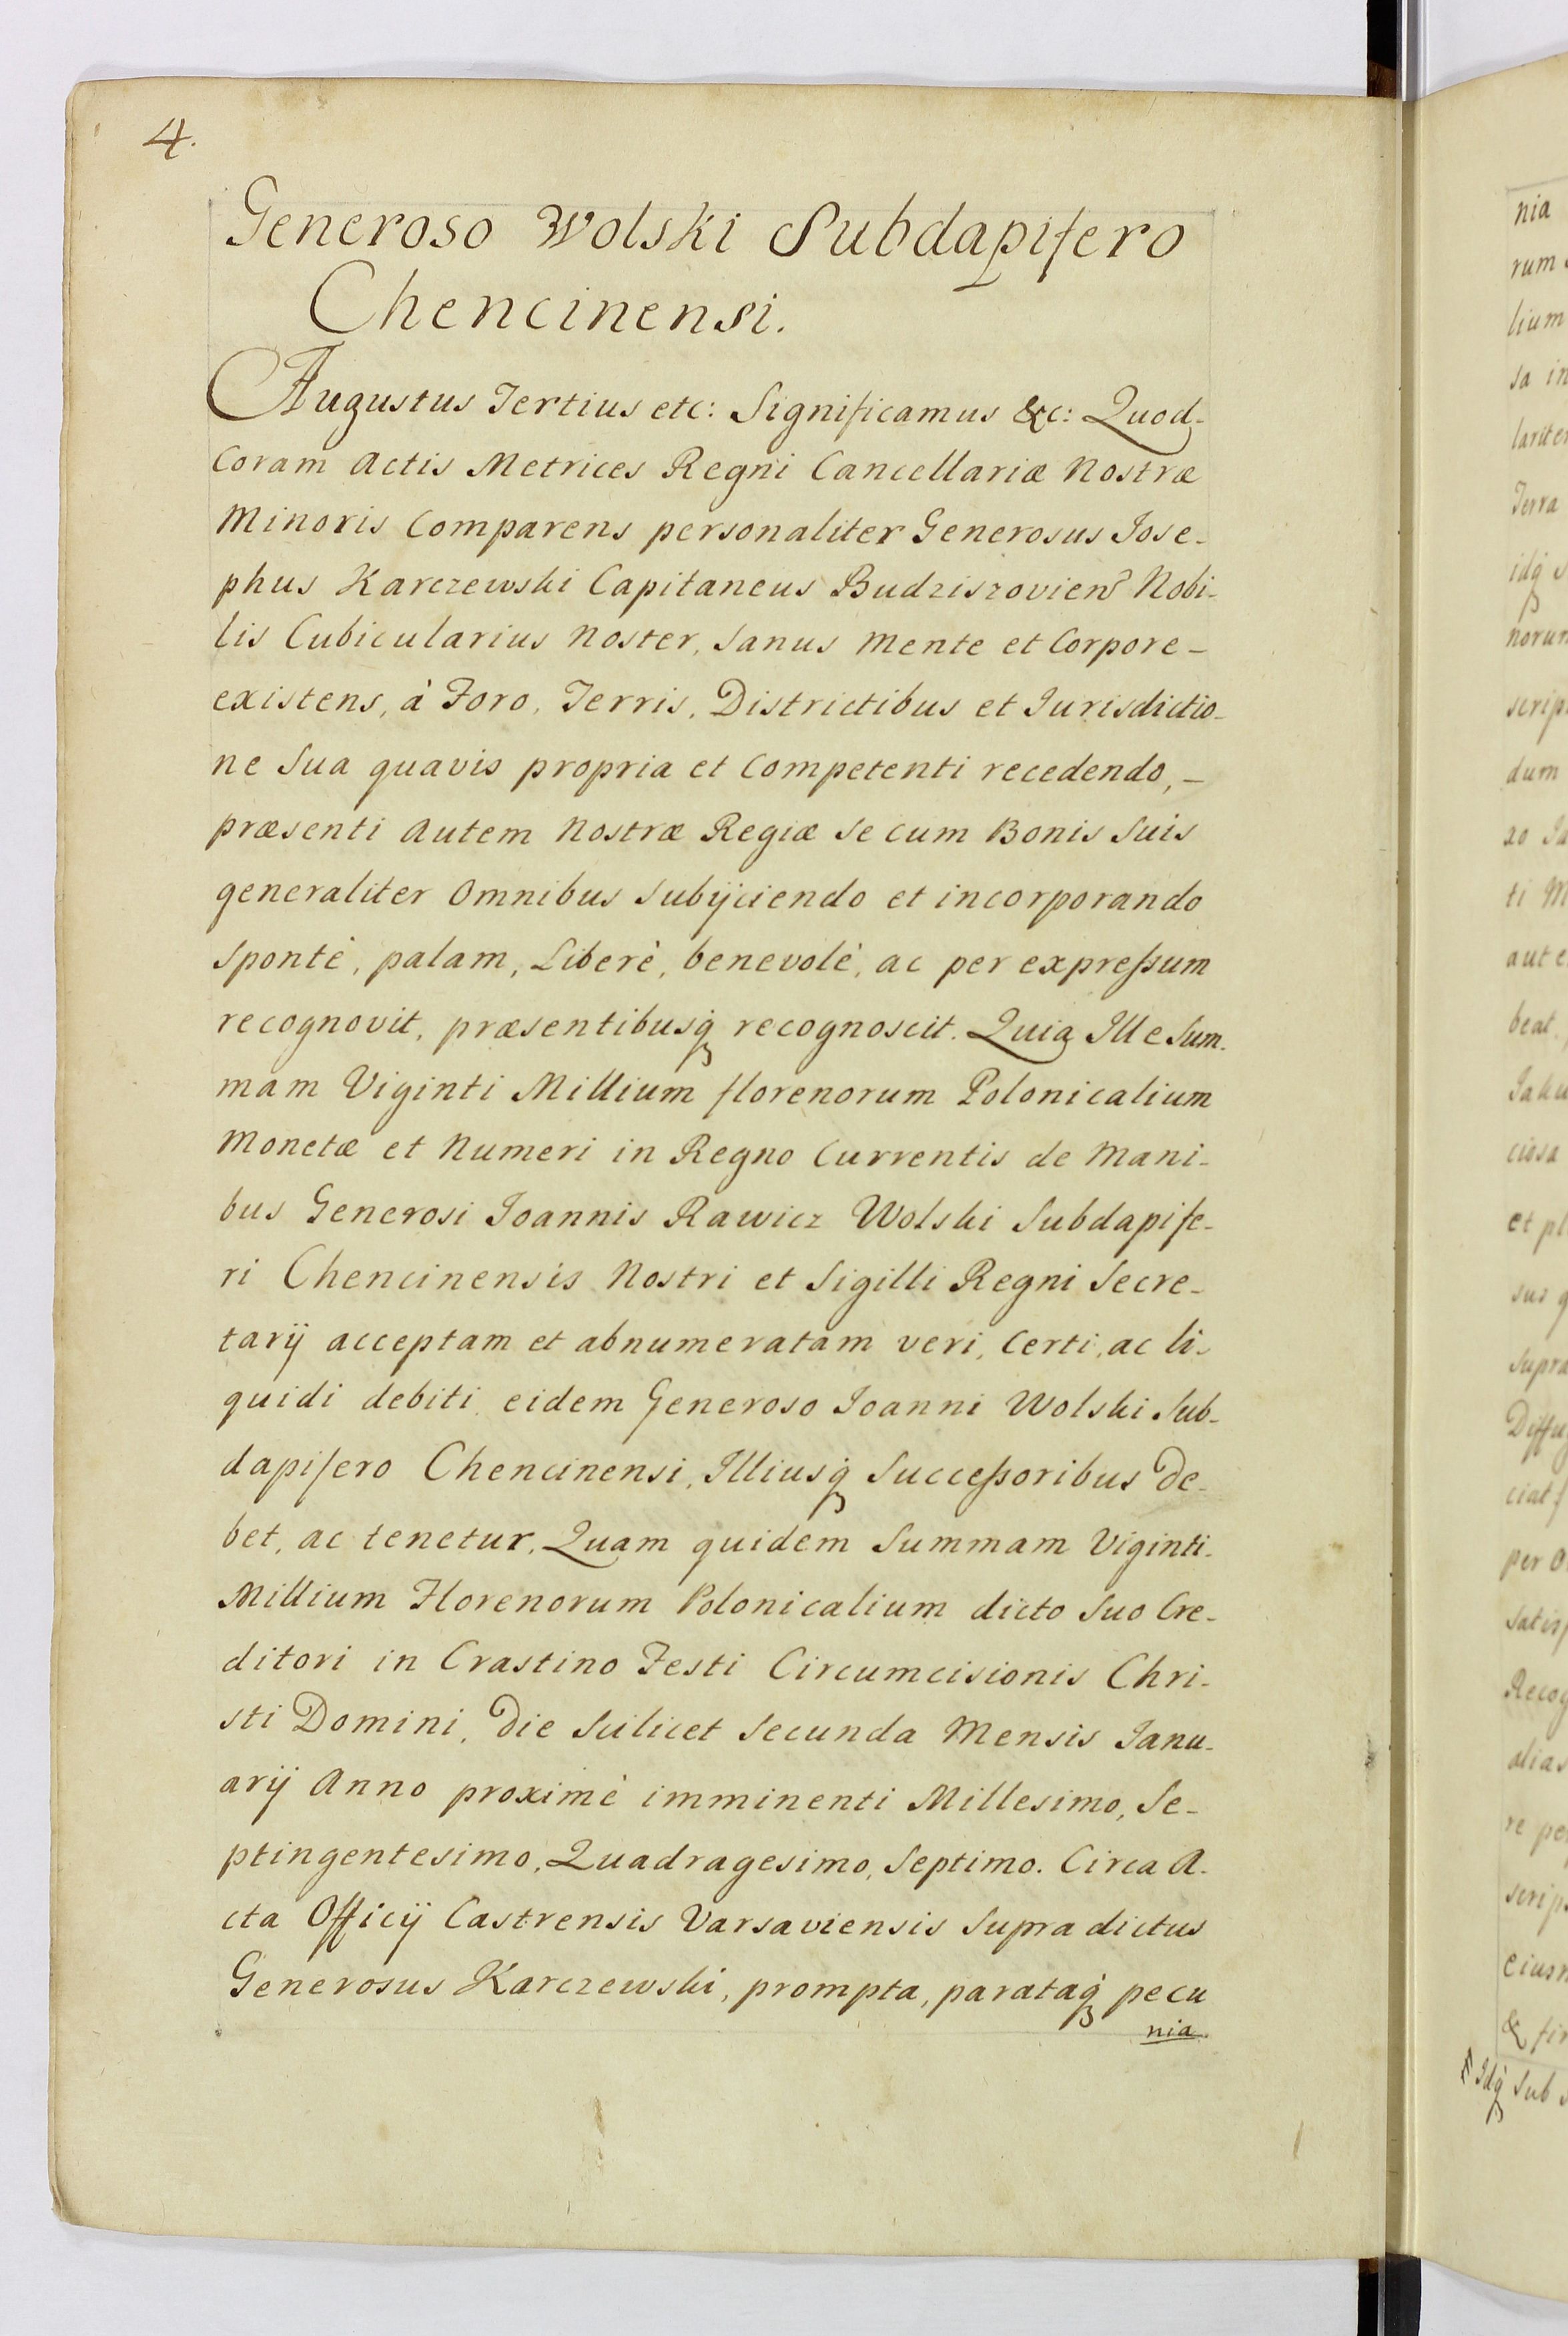 4.
Generoso Wolski Subdapifero
Chencinensi.
Augustus Tertius etc: Significamus &c: Quod
Coram Actis Metrices Regni Cancellariæ Nostræ
Minoris Comparens personaliter Generosus Jose-
phus Karczewski Capitaneus Budziszovien̄ Nobi-
lis Cubicularius Noster, Sanus Mente et Corpore-
existens, à Foro, Terris, Districtibus et Jurisdictio-
ne Sua quavis propria et Competenti recedendo, -
præsenti Autem Nostræ Regiæ Se cum Bonis Suis
generaliter Omnibus Subijciendo et incorporando
Spontè, palam, Liberè, benevolè, ac per expressum
recognovit, præsentibusq́ recognoscit. Quia Ille Sum-
mam Viginti Millium florenorum Polonicalium
Monetæ et Numeri in Regno Currentis de Mani-
bus Generosi Joannis Rawicz Wolski Subdapife-
ri Chencinensis Nostri et Sigilli Regni Secre-
tarij acceptam et abnumeratam veri, Certi, ac li-
quidi debiti eidem Generoso Joanni Wolski Sub-
dapifero Chencinensi, Illiusq́ Successoribus De-
bet, ac tenetur, Quam quidem Summam Viginti-
Millium Florenorum Polonicalium dicto Suo Cre-
ditori in Crastino Festi Circumcisionis Chri-
sti Domini, Die Scilicet Secunda Mensis Janu-
arij Anno proximè imminenti Millesimo, Se-
ptingentesimo, Quadragesimo, Septimo. Circa A-
cta Officij Castrensis Varsaviensis Supra dictus
Generosus Karczewski, prompta, parataq́ pecu
nia
nia
rum
lium
sa in
Terra
idq́
dum
ti
aut
beat
et
supra
per
Recog
alias
scrip
Idq́ Sub